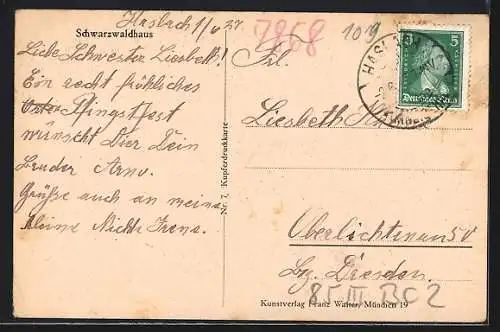 Schwarzwaldhaus
Hasbach 1/6 27
Liebe Schwester Liesbeth!
Ein recht fröhliches
Pfingstfest
wünscht Dir Dein
Bruder Arno.
Grüße auch an meine
kleine Nichte Irene.
Nr. 7. Kupferdruckkarte
7868
109
5
Deutsches Reich
HASL
Frl.
Liesbeth
Oberlichtenau 50
Bz. Dresden.
85 III BC 2
Kunstverlag Franz Walter, München 19